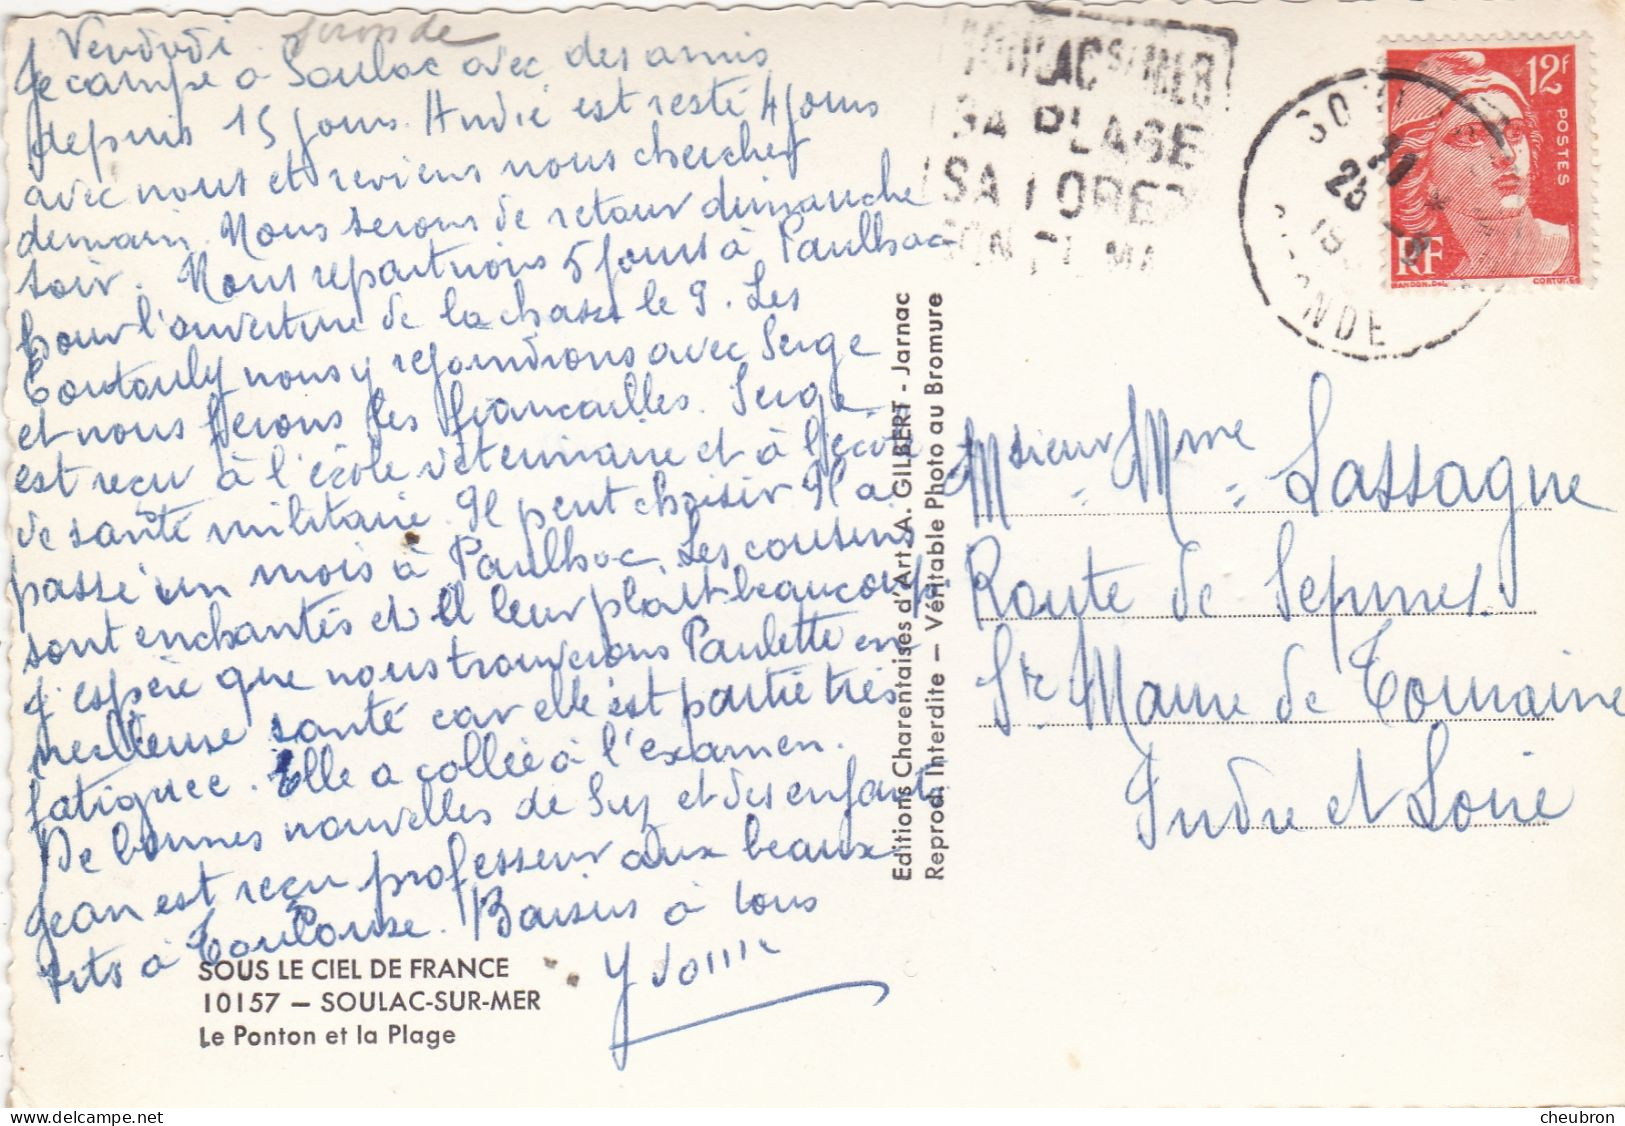 Vendredi
Gironde
Je campe à Soulac avec des amis
depuis 15 jours. André est resté 4 jours
avec nous et reviens nous chercher
demain. Nous serons de retour dimanche
soir. Nous repartirons 5 jours à Paulhac
pour l'ouverture de la chasse le 9. Les
Coutouly nous y rejoindrons avec Serge
et nous ferons les fiancailles. Serge
est reçu à l'école vétérinaire et à l'école
de santé militaire. Il peut choisir Il a
passé un mois à Paulhac. Les cousins
sont enchantés et il leur plait beaucoup.
J'espère que nous trouverons Paulette en
meilleure santé car elle est partie très
fatiguée. Elle a collée à l'examen.
De bonnes nouvelles de Suz et des enfants
Jean est reçu professeur aux beaux
arts à Toulouse. Baisers à tous
Yvonne
SOUS LE CIEL DE FRANCE
10157 – SOULAC-SUR-MER
Le Ponton et la Plage
Editions Charentaises d'Art A. GILBERT - Jarnac
Reprod. Interdite – Véritable Photo au Bromure
SOULAC S/MER
SA PLAGE
SA FORET
GIRONDE
12F
POSTES
RF
GANDON.Del
CORTOT.SC
Msieur Mme Lassagne
Route de Sepmes
Ste Maure de Touraine
Indre et Loire
cheubron_com